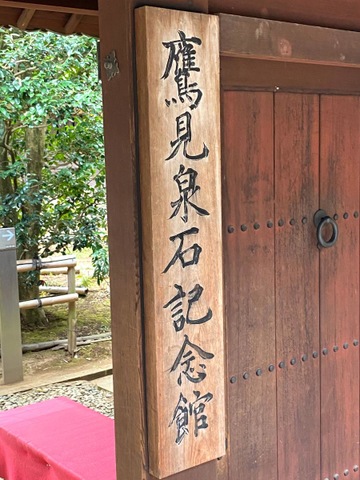 鷹見泉石記念館